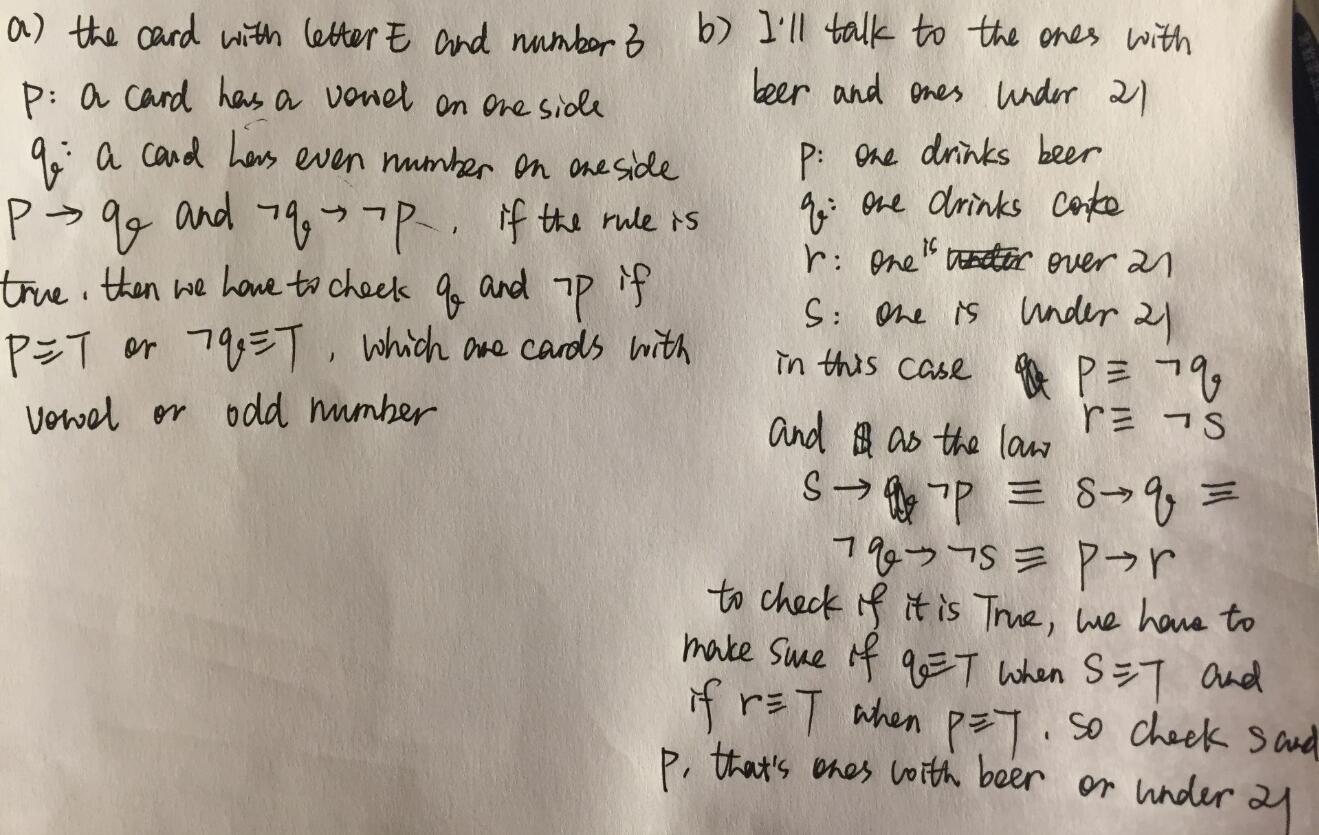 a) the card with letter E and number 3
p: a card has a vowel on one side
q: a card has even number on one side
P → q and ¬q → ¬p. if the rule is
true, then we have to check q and ¬p if
P≡T or ¬q≡T, which are cards with
vowel or odd number
b) I'll talk to the ones with
beer and ones under 21
p: one drinks beer
q: one drinks coke
r: one is over 21
S: one is under 21
in this case p ≡ ¬q
r ≡ ¬s
and as the law
S → ¬p ≡ s → q ≡
¬q → ¬s ≡ p → r
to check if it is True, we have to
make sure if q≡T when S≡T and
if r≡T when p≡T. so check s and
p, that's ones with beer or under 21